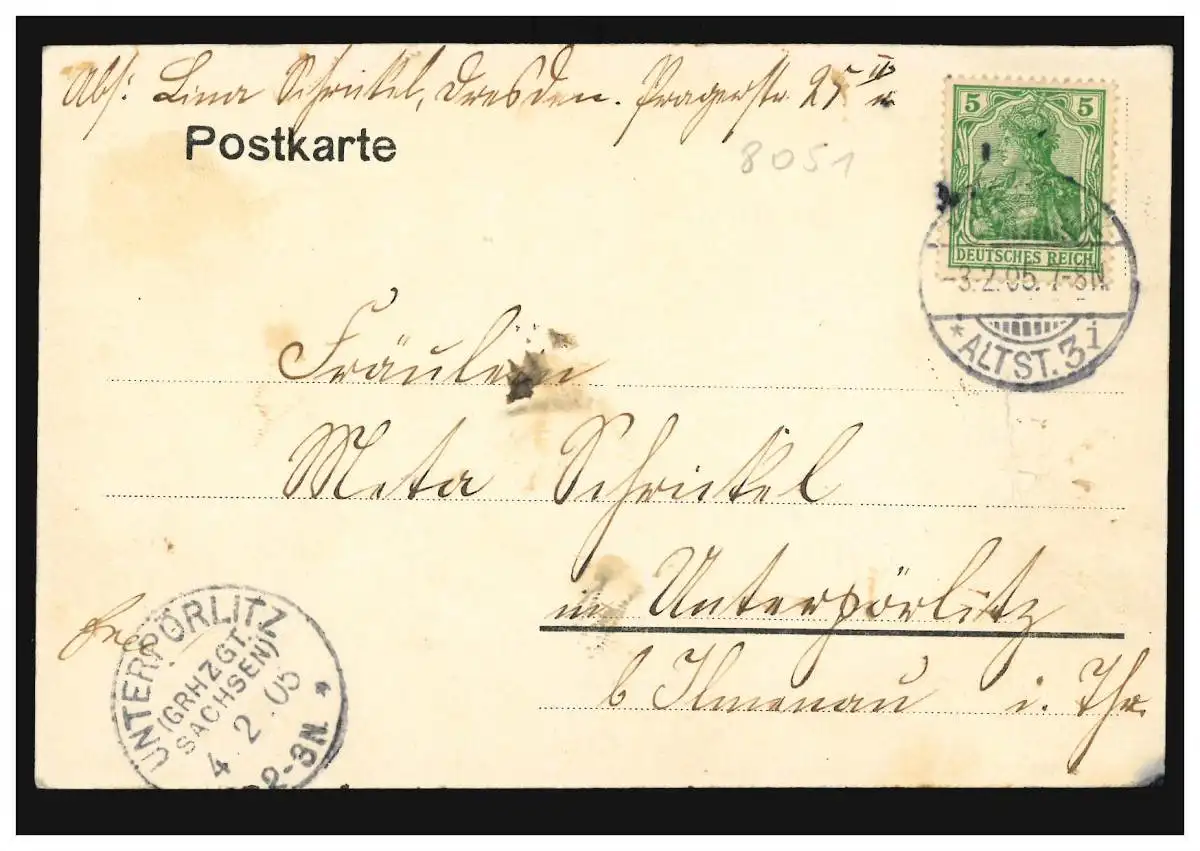 Abs: Lina Schrickel, Dresden. Pragerstr. 25 II
Postkarte
8051
5 5
DEUTSCHES REICH
-3.2.05. 7-8N.
* ALTST. 3i
Fräulein
Meta Schrickel
in Unterpörlitz
b Ilmenau i. Thr.
frei
UNTERPÖRLITZ
(GRHZGT.
SACHSEN)
4.2.05 *
2-3N.